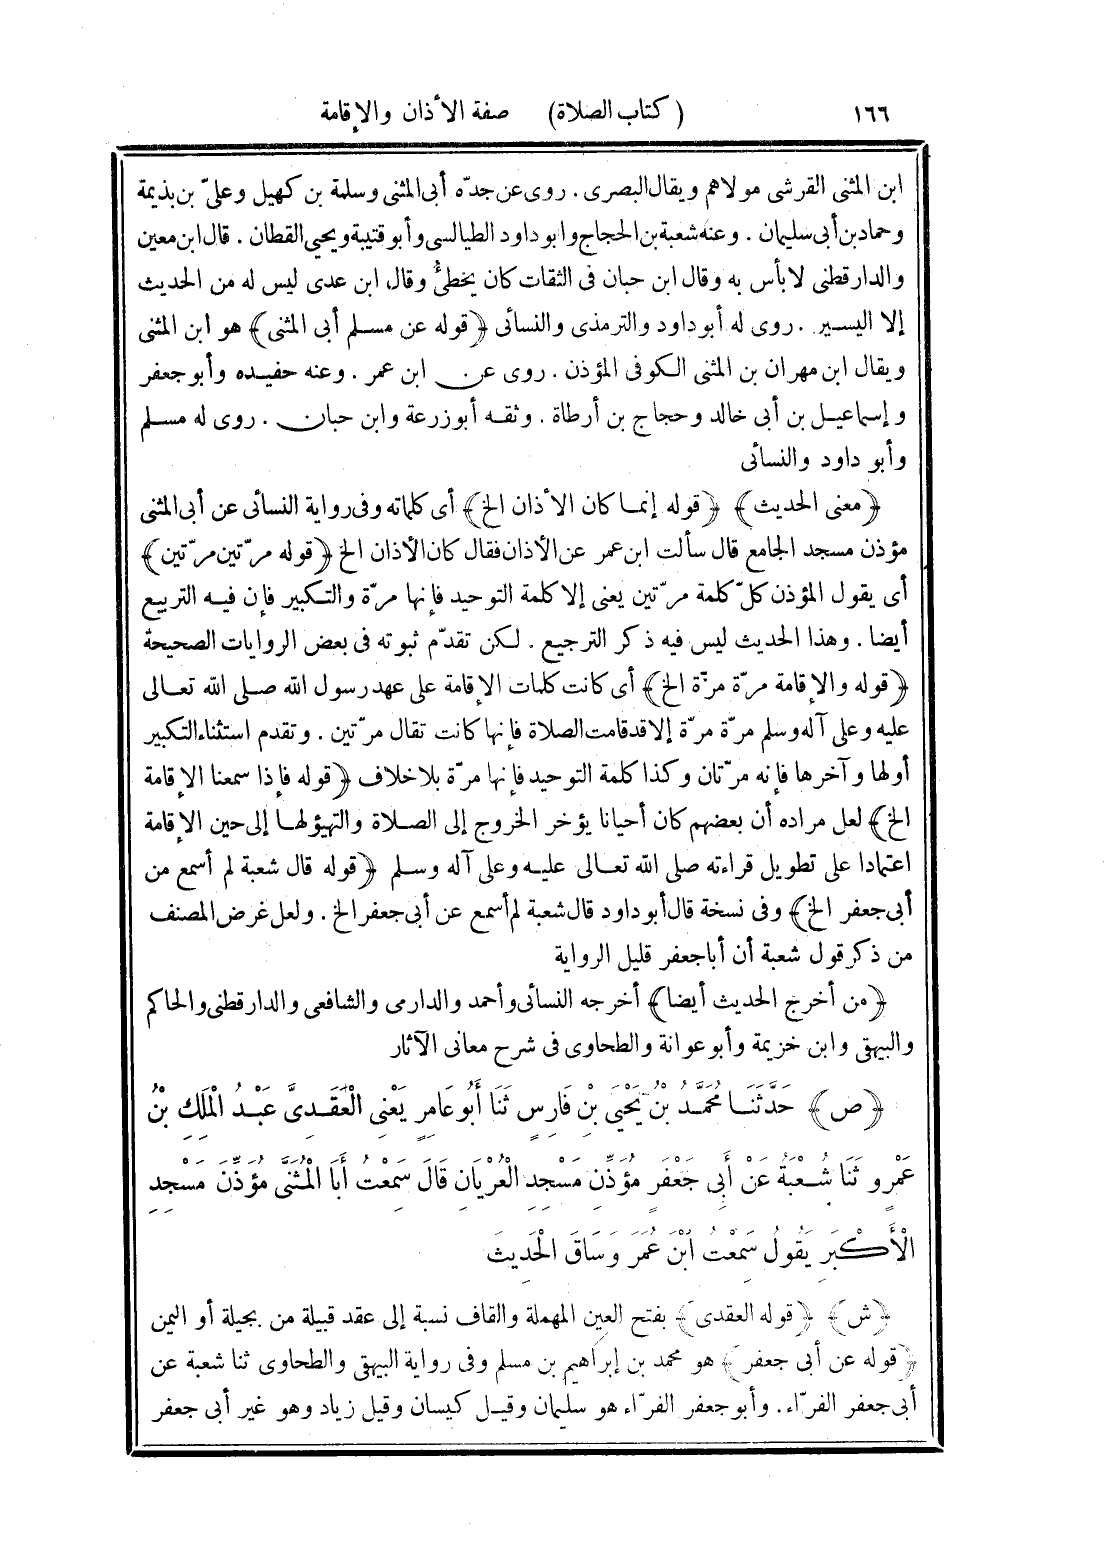 ١٦٦ (كتاب الصلاة) صفة الأذان والإقامة
ابن المثنى القرشى مولاهم ويقال البصرى . روى عن جدّه أبى المثنى وسلمة بن كهيل وعلىّ بن بذيمة
وحماد بن أبى سليمان . وعنه شعبة بن الحجاج وابو داود الطيالسى وأبو قتيبة ويحيى القطان . قال ابن معين
والدارقطنى لا بأس به وقال ابن حبان فى الثقات كان يخطئُ وقال ابن عدى ليس له من الحديث
إلا اليسير . روى له أبو داود والترمذى والنسائى ﴿قوله عن مسلم أبى المثنى﴾ هو ابن المثنى
ويقال ابن مهران بن المثنى الكوفى المؤذن . روى عن ابن عمر . وعنه حفيده وأبو جعفر
وإسماعيل بن أبى خالد وحجاج بن أرطاة . وثقه أبو زرعة وابن حبان . روى له مسلم
وأبو داود والنسائى
﴿معنى الحديث﴾ ﴿قوله إنما كان الأذان الخ﴾ أى كلماته وفى رواية النسائى عن أبى المثنى
مؤذن مسجد الجامع قال سألت ابن عمر عن الأذان فقال كان الأذان الخ ﴿قوله مرّتين مرّتين﴾
أى يقول المؤذن كلّ كلمة مرّتين يعنى إلا كلمة التوحيد فإنها مرّة والتكبير فإن فيه التربيع
أيضا . وهذا الحديث ليس فيه ذكر الترجيع . لكن تقدّم ثبوته فى بعض الروايات الصحيحة
﴿قوله والإقامة مرّة مرّة الخ﴾ أى كانت كلمات الإقامة على عهد رسول الله صلى الله تعالى
عليه وعلى آله وسلم مرّة مرّة إلا قد قامت الصلاة فإنها كانت تقال مرّتين . وتقدم استثناء التكبير
أولها وآخرها فإنه مرّتان وكذا كلمة التوحيد فإنها مرّة بلا خلاف ﴿قوله فإذا سمعنا الإقامة
الخ﴾ لعل مراده أن بعضهم كان أحيانا يؤخر الخروج إلى الصلاة والتهيؤ لها إلى حين الإقامة
اعتمادا على تطويل قراءته صلى الله تعالى عليه وعلى آله وسلم ﴿قوله قال شعبة لم أسمع من
أبى جعفر الخ﴾ وفى نسخة قال أبو داود قال شعبة لم أسمع عن أبى جعفر الخ . ولعل غرض المصنف
من ذكر قول شعبة أن أبا جعفر قليل الرواية
﴿من أخرج الحديث أيضا﴾ أخرجه النسائى وأحمد والدارمى والشافعى والدارقطنى والحاكم
والبيهقى وابن خزيمة وأبو عوانة والطحاوى فى شرح معانى الآثار
﴿ص﴾ حَدَّثَنَا مُحَمَّدُ بْنُ يَحْيَى بْنِ فَارِسٍ ثَنَا أَبُو عَامِرٍ يَعْنِى الْعَقَدِىَّ عَبْدُ الْمَلِكِ بْنُ
عَمْرٍو ثَنَا شُعْبَةُ عَنْ أَبِى جَعْفَرٍ مُؤَذِّنِ مَسْجِدِ الْعُرْيَانِ قَالَ سَمِعْتُ أَبَا الْمُثَنَّى مُؤَذِّنَ مَسْجِدِ
الْأَكْبَرِ يَقُولُ سَمِعْتُ ابْنَ عُمَرَ وَسَاقَ الْحَدِيثَ
﴿ش﴾ ﴿قوله العقدى﴾ بفتح العين المهملة والقاف نسبة إلى عقد قبيلة من بجيلة أو اليمن
﴿قوله عن أبى جعفر﴾ هو محمد بن إبراهيم بن مسلم وفى رواية البيهقى والطحاوى ثنا شعبة عن
أبى جعفر الفرّاء . وأبو جعفر الفرّاء هو سليمان وقيل كيسان وقيل زياد وهو غير أبى جعفر